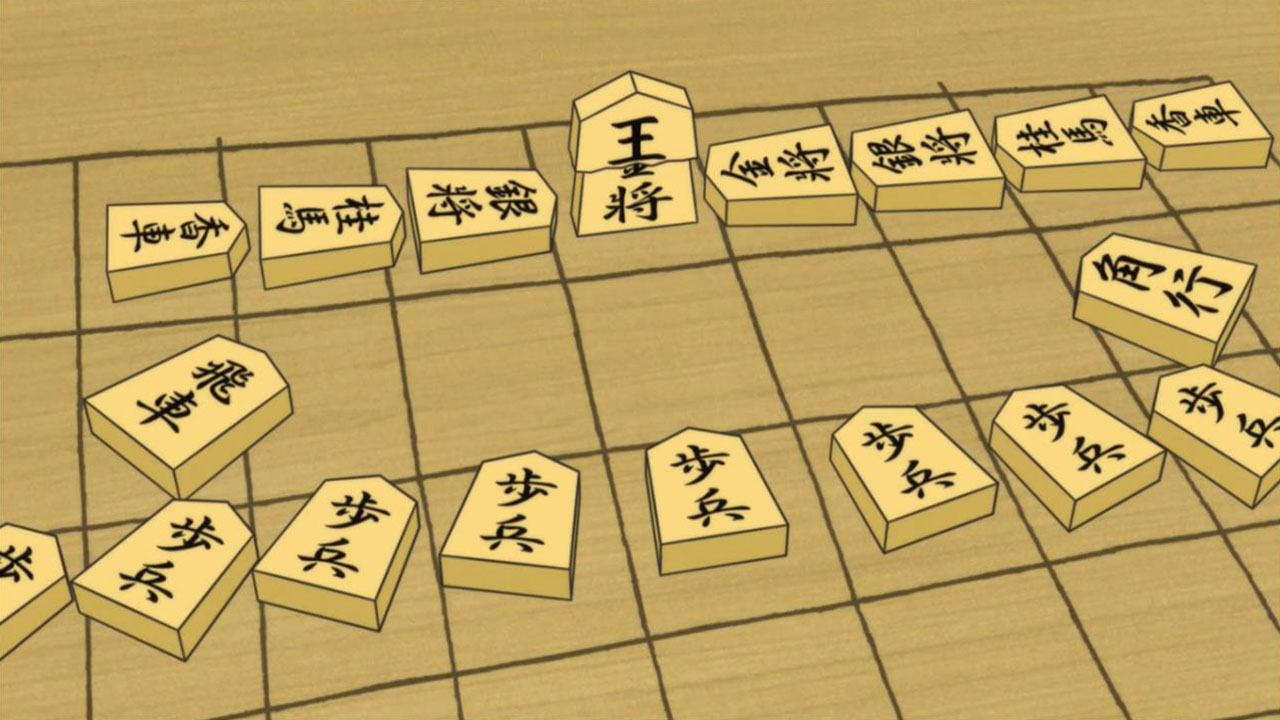 香車
桂馬
銀将
王
将
金将
銀将
桂馬
香車
角行
飛車
歩
歩兵
歩兵
歩兵
歩兵
歩兵
歩兵
歩兵